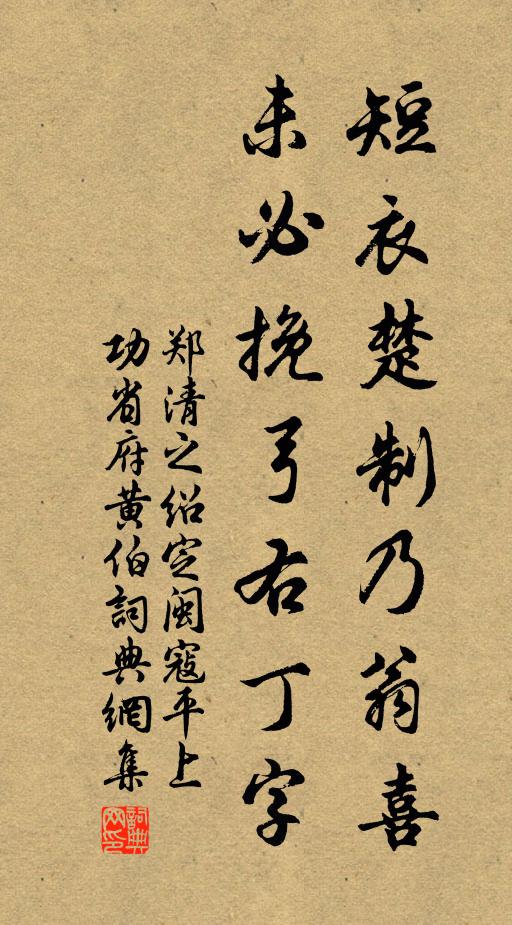 短衣楚制乃翁喜
未必挽弓右丁字
郑清之绍定闽寇平上
功省府黄伯詞典網集
詞典网印